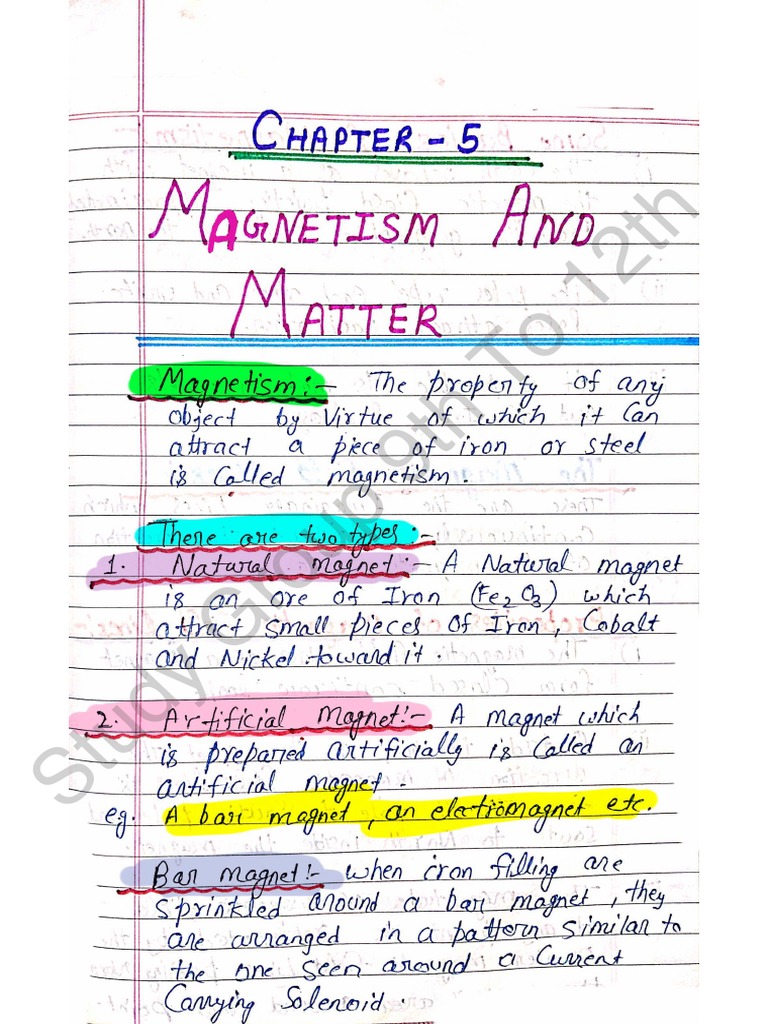 CHAPTER - 5
MAGNETISM AND
MATTER
Magnetism:- The property of any
object by Virtue of which it Can
attract a piece of iron or steel
is Called magnetism.
There are two types:-
1. Natural magnet:- A Natural magnet
is an ore of Iron (Fe2O3) which
attract small pieces of Iron, Cobalt
and Nickel toward it.
2. Artificial Magnet:- A magnet which
is prepared artificially is Called an
artificial magnet.
eg. A bar magnet, an electromagnet etc.
Bar magnet:- when iron filling are
Sprinkled around a bar magnet, they
are arranged in a pattern similar to
the one seen around a Current
Carrying Solenoid.
Study Group 9th To 12th